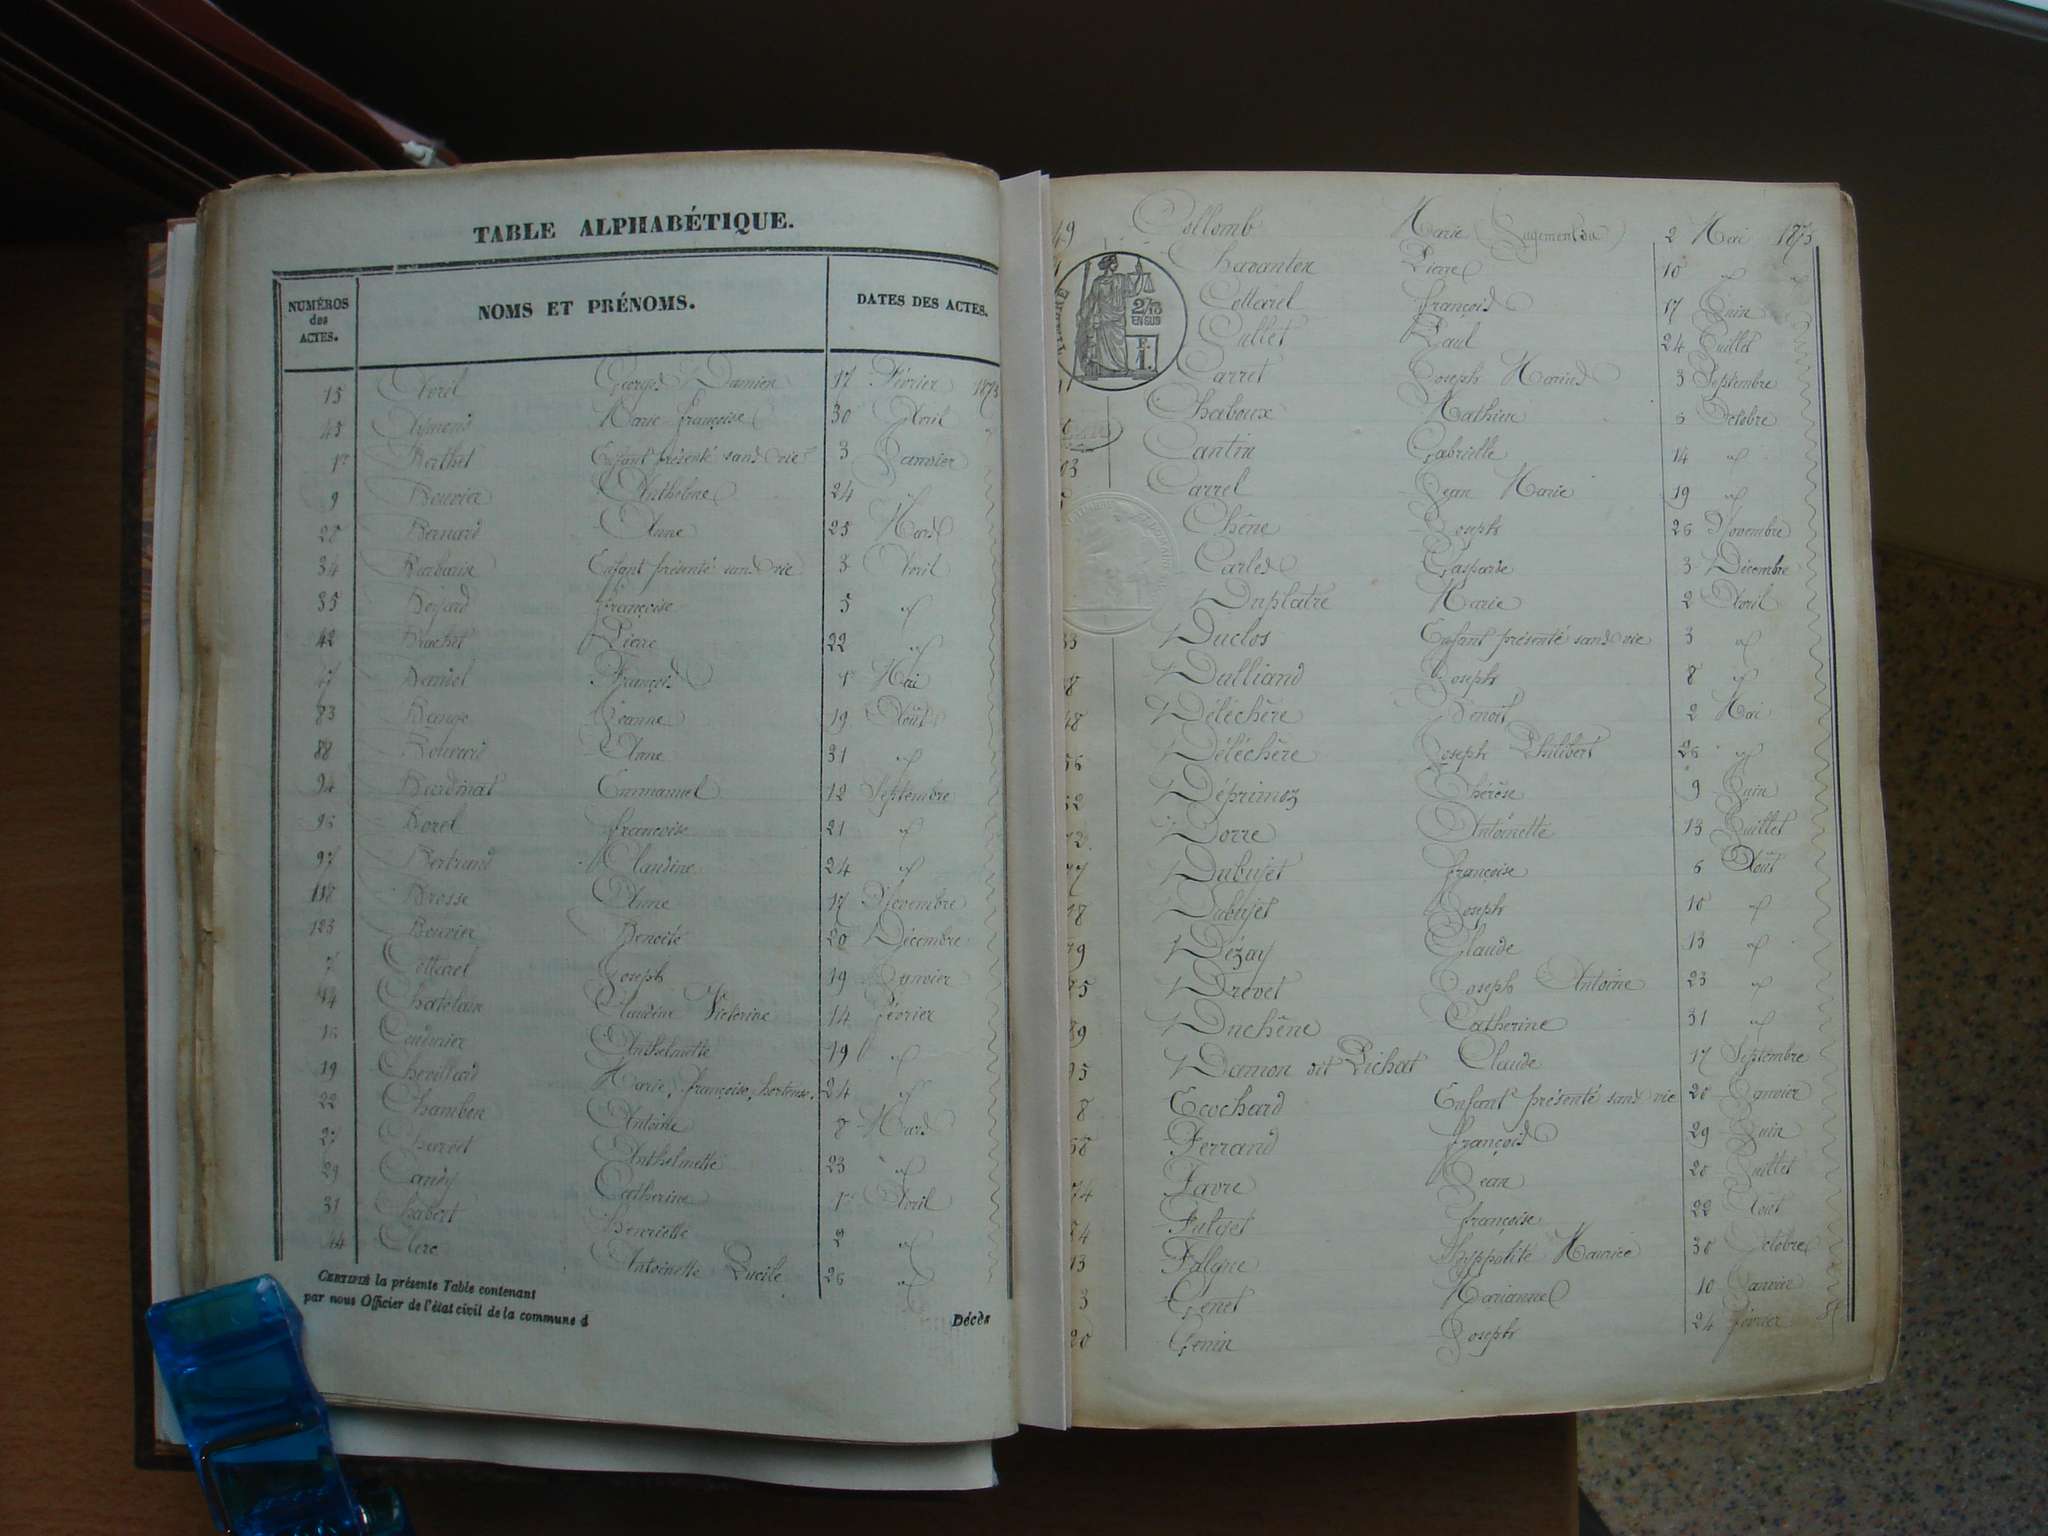 TABLE ALPHABÉTIQUE.
NUMÉROS des ACTES. NOMS ET PRÉNOMS. DATES DES ACTES.
15 Avril Georges Damien 17 Février 1873
45 Aymond Marie Françoise 30 Avril "
1er Berthet Enfant présenté sans vie 3 Janvier
9 Bouvier Anthelme 24 "
28 Bernard Anne 25 Mars
34 Enfant présenté sans vie 3 Avril
35 Françoise 5 "
42 Brachet Pierre 22 "
47 François 1er Mai
83 Jeanne 19 Août
88 Anne 31 "
94 Emmanuel 12 Septembre
96 Borel Françoise 21 "
97 Bertrand Claudine 24 "
118 Brosse Anne 17 Novembre
123 Bouvier Benoite 20 Décembre
7 Cottarel Joseph 19 Janvier
14 Chatelain Claudine Victorine 14 Février
16 Couturier Anthelmette 19 "
19 Chevillard Marie, Françoise, hortense. 24 "
22 Chambon Antoine 8 Mars
27 Anthelmette 23 "
29 Candy Catherine 1er Avril
31 Chabert henriette 2 "
44 Clerc Antoinette Lucile 26 "
CERTIFIÉ la présente Table contenant
par nous Officier de l'état civil de la commune d
Décès
49 Collomb Marie 2 Mai 1873
Chavanten Pierre 10 " "
Cottarel François 17 Juin
Cullet Paul 24 Juillet
2/10 EN SUS
F. 1.
Carret Joseph Marius 3 Septembre
Chaboux Mathieu 6 Octobre
Cantin Gabrielle 14 "
Carrel Jean Marie 19 "
Chêne Joseph 26 Novembre
Carles Gasparde 3 Décembre
Duplatre Marie 2 Avril
33 Duclos Enfant présenté sans vie 3 "
Dulliand Joseph 8 "
48 Déléchère Benoit 2 Mai
56 Déléchère Joseph Philibert 28 "
Déprimoz Thérèse 9 Juin
Dorre Antoinette 13 Juillet
77 Dubujet Françoise 6 Août
78 Dubujet Joseph 10 "
79 Dézay Claude 13 "
Drevet Joseph Antoine 23 "
89 Duchêne Catherine 31 "
95 Damon dit Pichat Claude 17 Septembre
8 Ecochard Enfant présenté sans vie 20 Janvier
68 Ferrand François 29 Juin
74 Favre Jean 20 Juillet
Fulyet Françoise 22 Août
13 Falque hyppolite Maurice 30 Octobre
3 Genet Marianne 10 Janvier
20 Genin Joseph 24 Février